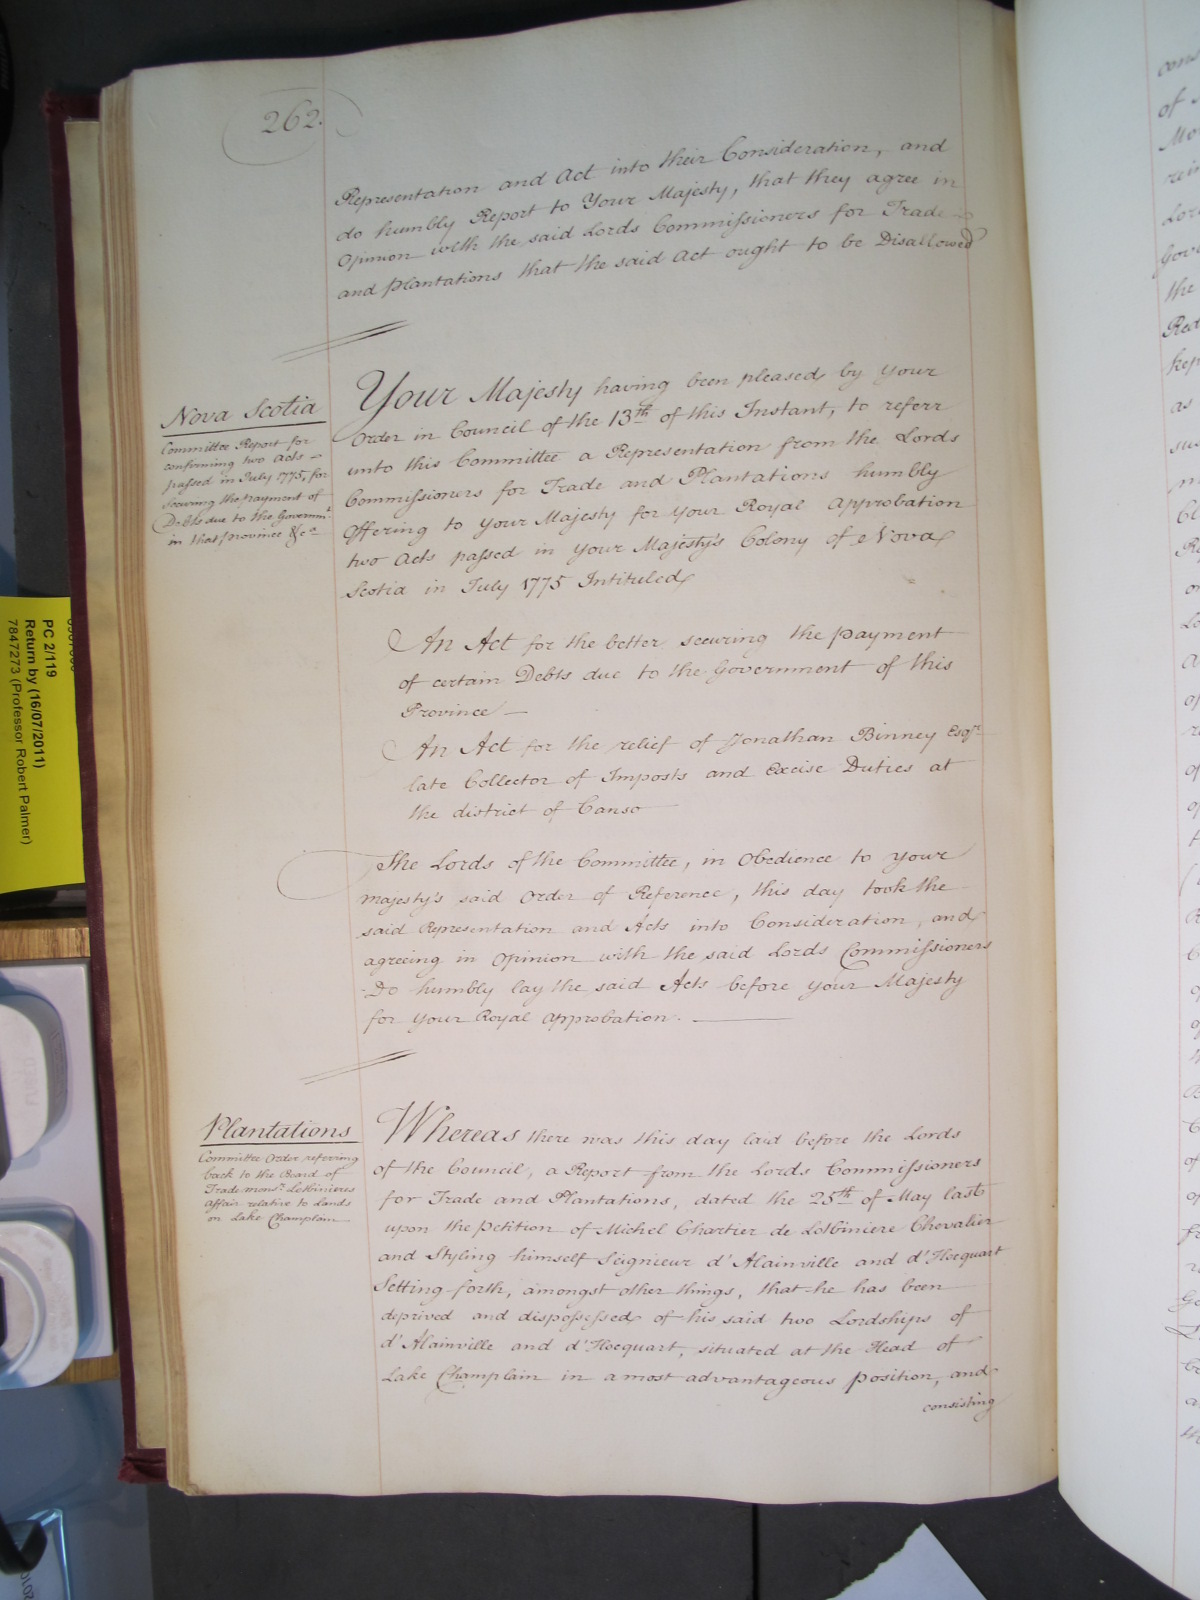 262.
Representation and Act into their Consideration, and
do humbly Report to Your Majesty, that they agree in
Opinion with the said Lords Commissioners for Trade
and Plantations that the said Act ought to be Disallowed
Nova Scotia
Committee Report for
confirming two Acts
passed in July 1775, for
securing the payment of
Debts due to the Governmt
in that province &ca
Your Majesty having been pleased by Your
Order in Council of the 13th of this Instant, to referr
unto this Committee a Representation from the Lords
Commissioners for Trade and Plantations humbly
Offering to Your Majesty for Your Royal Approbation
two Acts passed in Your Majesty's Colony of Nova
Scotia in July 1775 Intituled
An Act for the better securing the payment
of certain Debts due to the Government of this
Province —
An Act for the relief of Jonathan Binney Esqr
late Collector of Imposts and Excise Duties at
the district of Canso
The Lords of the Committee, in Obedience to Your
Majesty's said Order of Reference, this day took the
said Representation and Acts into Consideration, and
agreeing in Opinion with the said Lords Commissioners
Do humbly lay the said Acts before Your Majesty
for Your Royal Approbation. —
Plantations
Committee Order referring
back to the Board of
Trade Monsr Lotbinieres
affair relative to Lands
on Lake Champlain
Whereas there was this day laid before the Lords
of the Council, a Report from the Lords Commissioners
for Trade and Plantations, dated the 25th of May last
upon the Petition of Michel Chartier de Lotbiniere Chevalier
and Styling himself Seignieur d'Alainville and d'Hocquart
Setting forth, amongst other things, that he has been
deprived and dispossessed of his said two Lordships of
d'Alainville and d'Hocquart, situated at the Head of
Lake Champlain in a most advantageous position, and
consisting
PC 2/119
Return by (16/07/2011)
7847273 (Professor Robert Palmer)